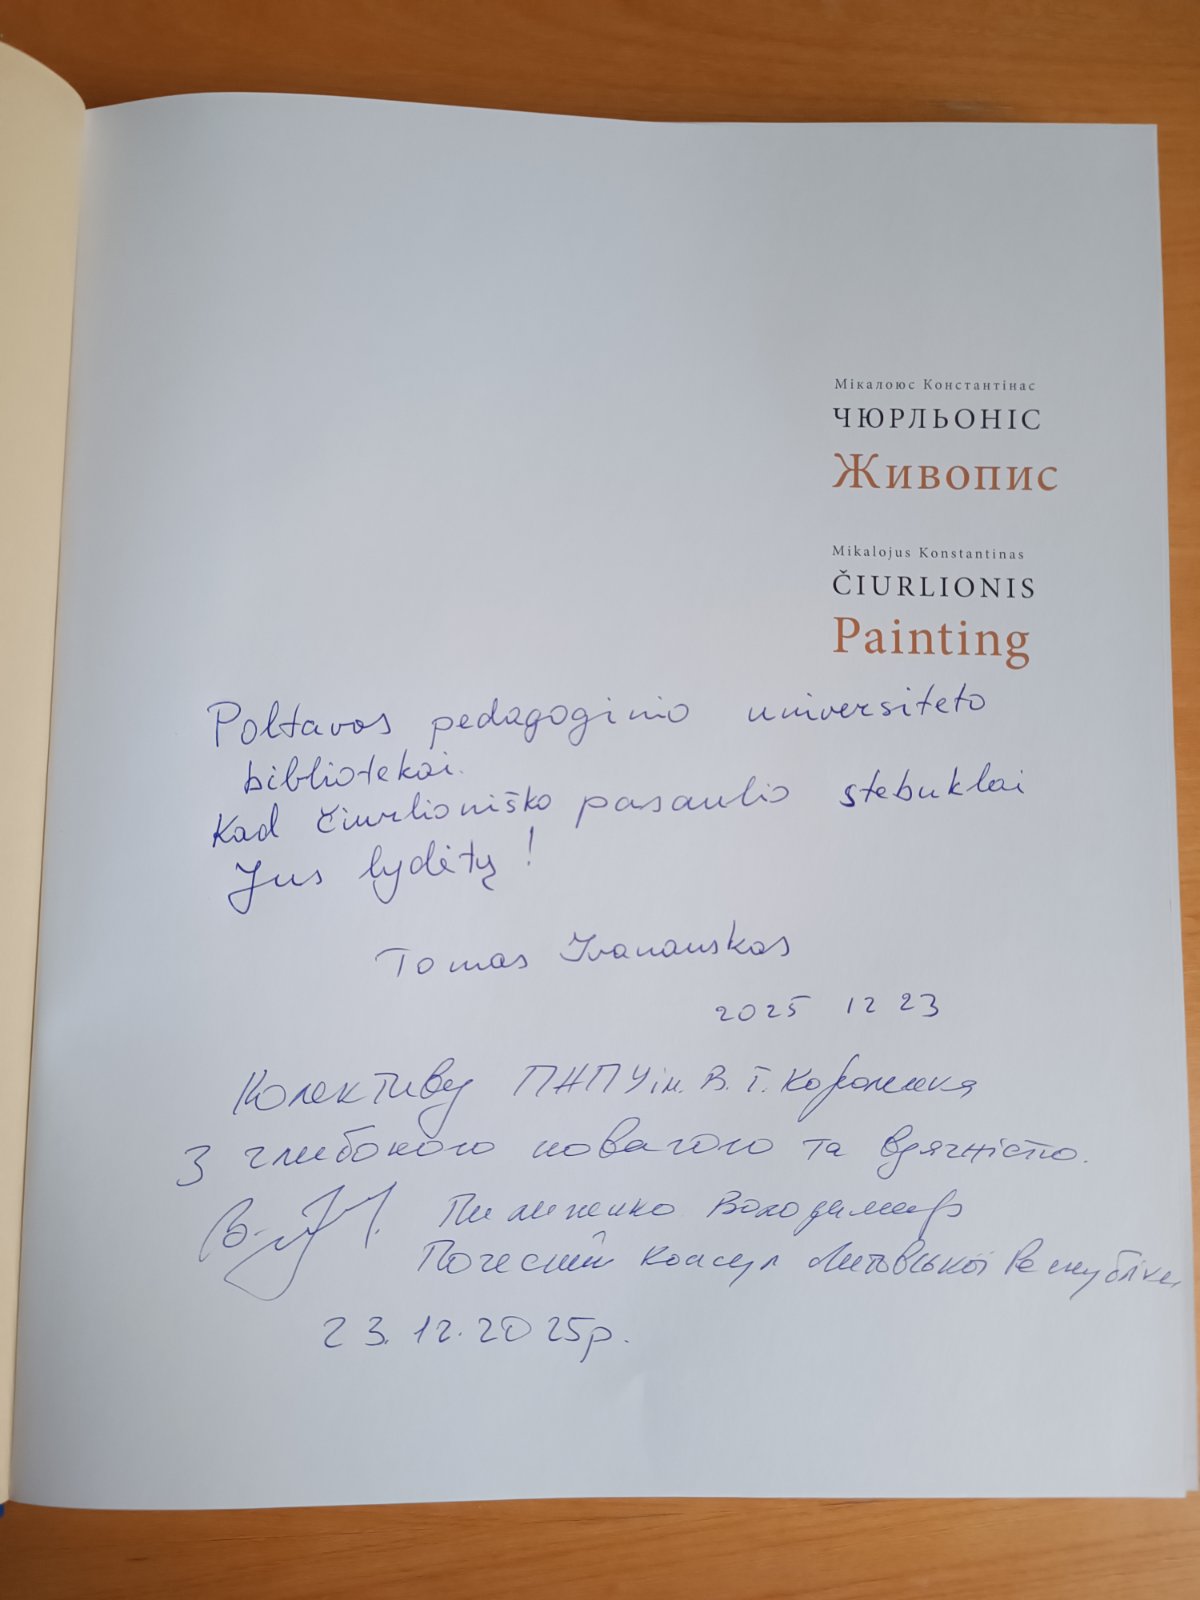 Мікалоюс Константінас
ЧЮРЛЬОНІС
Живопис
Mikalojus Konstantinas
ČIURLIONIS
Painting
Poltavos pedagoginio universiteto
bibliotekai.
Kad čiurlioniško pasaulio stebuklai
Jus lydėtų!
Tomas Ivanauskas
2025 12 23
Колективу ПНПУ ім. В. Г. Короленка
З глибокою повагою та вдячністю.
Пилипенко Володимир
Почесний консул Литовської Республіки
23.12.2025р.